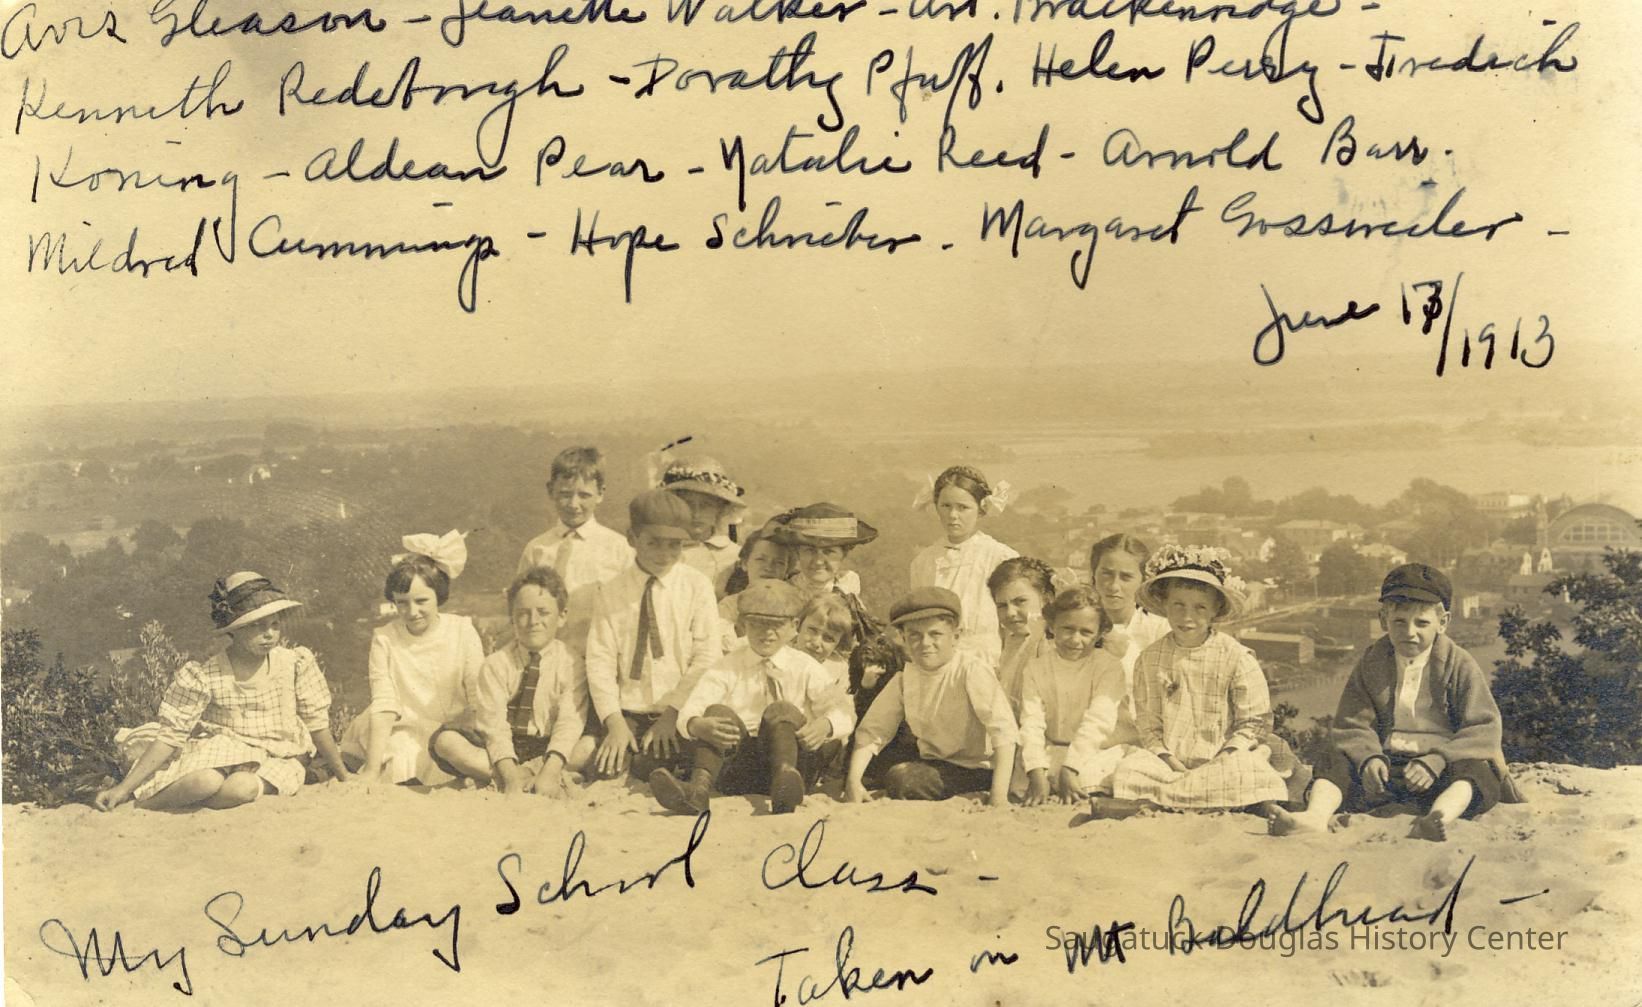 Avis Gleason - Jeanette Walker - Art. Brackenridge -
Kenneth Redebough - Dorathy Pfaff. Helen Perry - Fredrich
Koning - Aldean Pear - Natalie Reed - Arnold Barr.
Mildred Cummings - Hope Schrieber. Margaret Gossweiler -
June 13/1913
My Sunday School Class -
Taken on Mt Baldhead -
Saugatuck-Douglas History Center